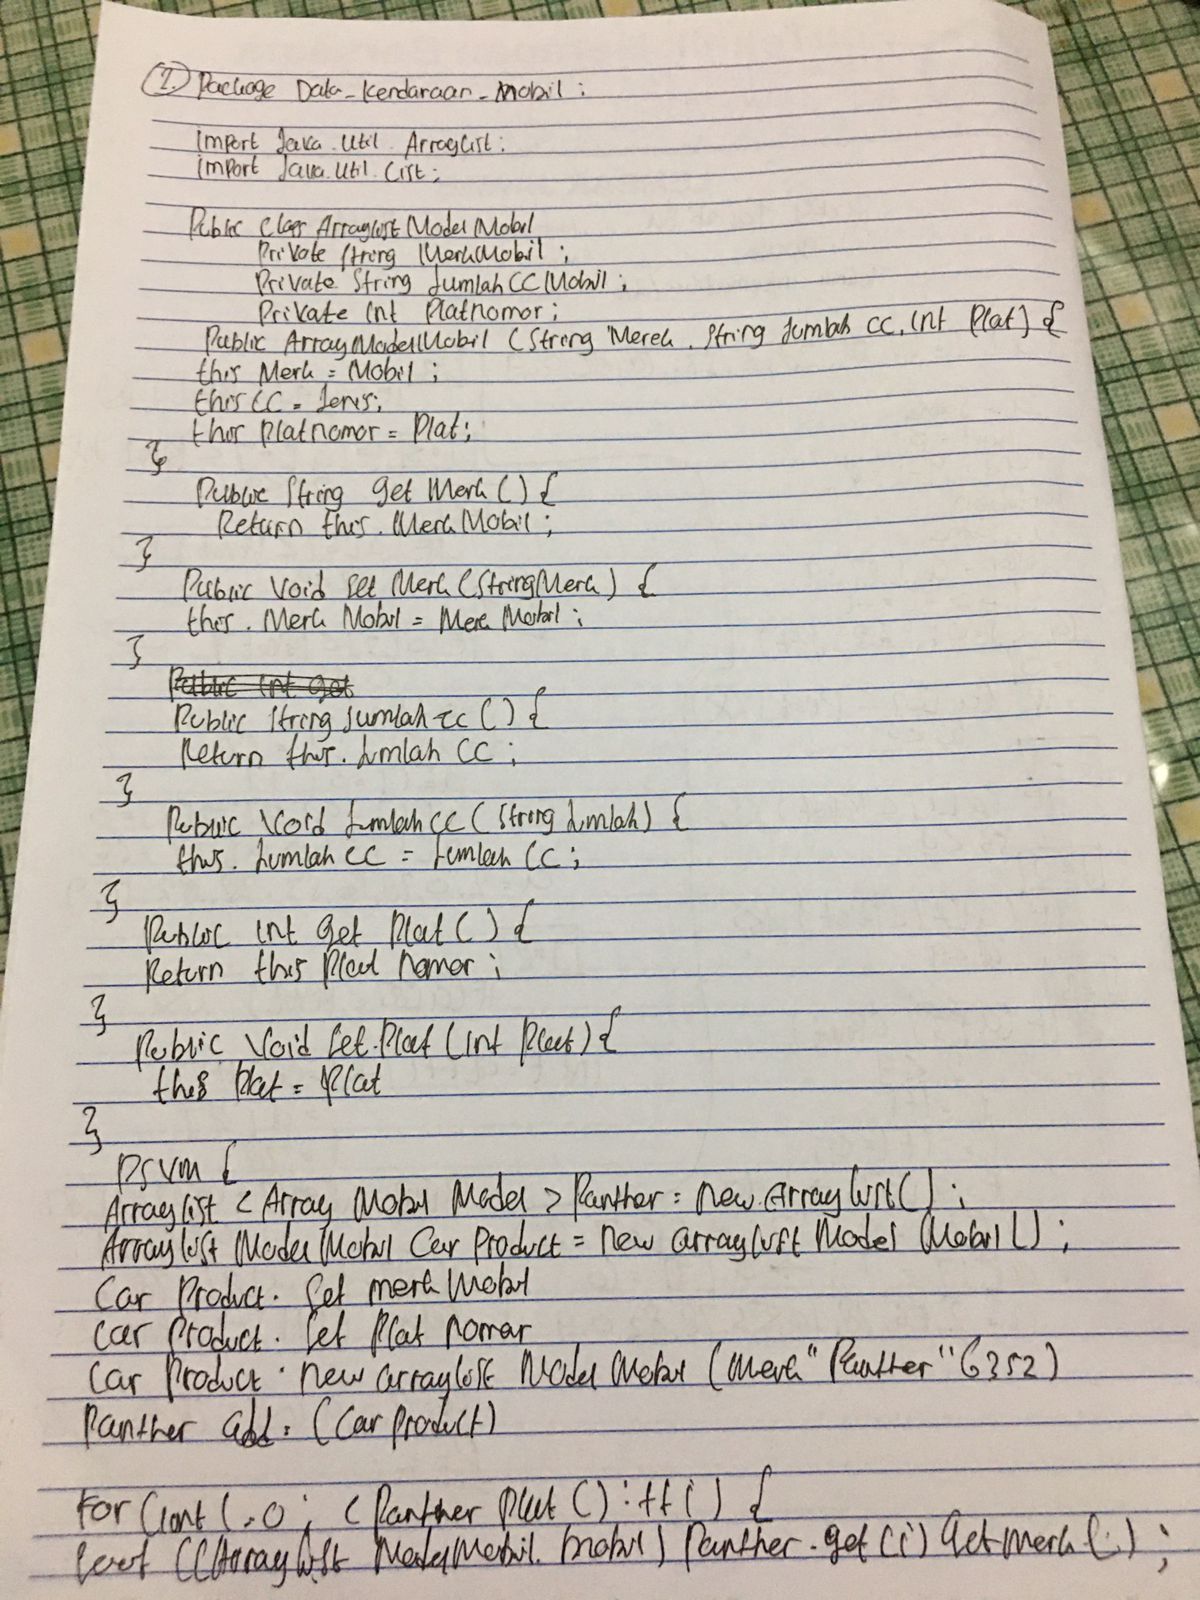 1. Package Data_Kendaraan_Mobil ;
import Java.Util. ArrayList ;
import Java.Util.List ;
Public Class ArraylistModelMobil
Private String MerkMobil ;
Private String Jumlah CC Mobil ;
Private Int Platnomor ;
Public ArrayModelMobil (String Merek, String Jumlah CC, Int Plat) {
this Merk = Mobil ;
this CC = Jenis;
this Platnomor = Plat;
}
Public String get Merk () {
Return this. MerkMobil ;
}
Public Void Set Merk (StringMerk) {
this. Merk Mobil = Merk Mobil ;
}
Public int get
Public String Jumlah CC () {
Return this. Jumlah CC ;
}
Public Void Jumlah CC (String Jumlah) {
this. Jumlah CC = Jumlah CC ;
}
Public int get Plat () {
Return this Plat nomor ;
}
Public Void Set.Plat (int Plat) {
this Plat = Plat
}
PSVM {
Arraylist < Array Mobil Model > Panther = new.Arraylist() ;
Arraylist Model Mobil Car Product = new arraylist Model Mobil () ;
Car Product. Set merk Mobil
Car Product. Set Plat nomor
Car Product. new arraylist Model Mobil (Merk "Panther" 6352)
Panther add. (Car Product)
For (int i=0 ; < Panther Plat () : ++i) {
((Arraylist ModelMobil. mobil) Panther.get (i) GetMerk () ;